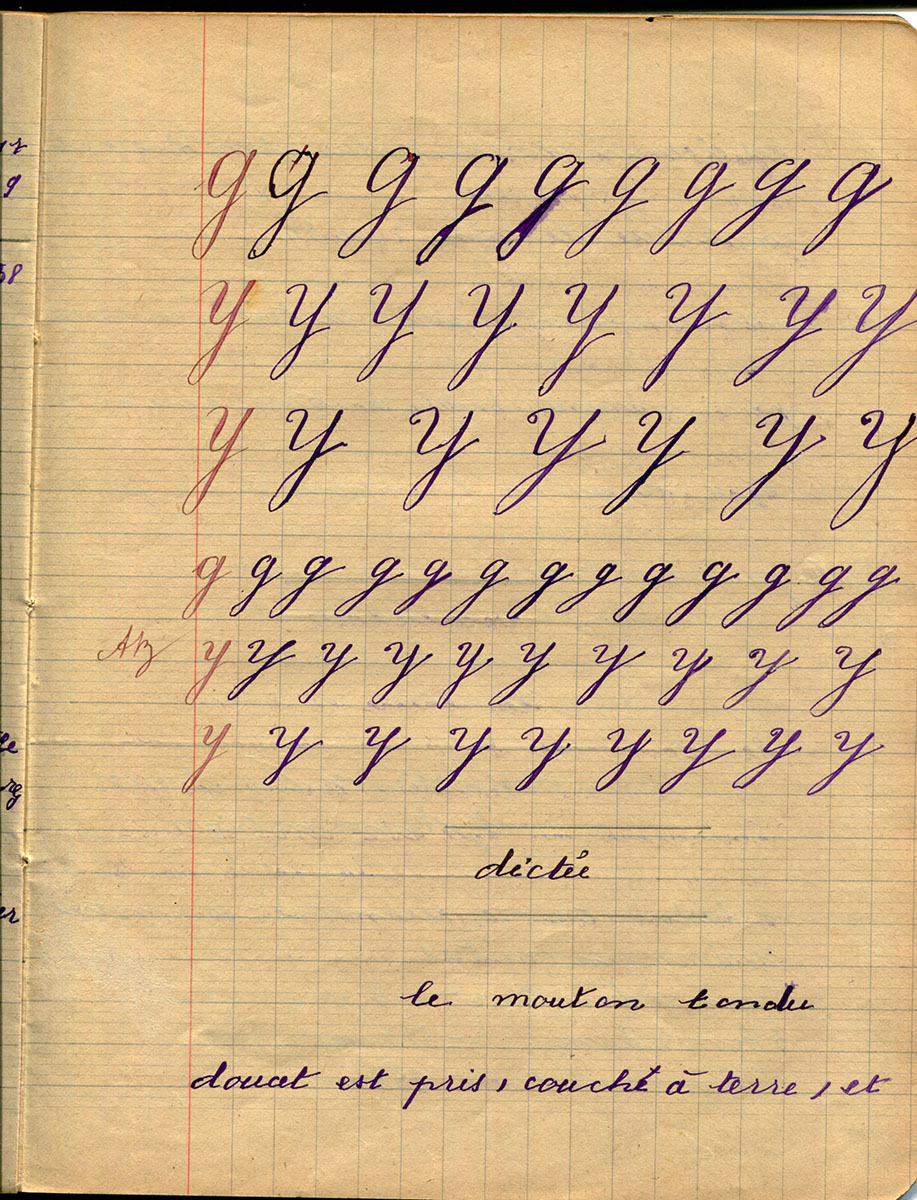 g g g g g g g g g
y y y y y y y y
y y y y y y y
g g g g g g g g g g g g g
AB y y y y y y y y y y
y y y y y y y y y
dictée
le mouton tondu
douat est pris, couché à terre, et